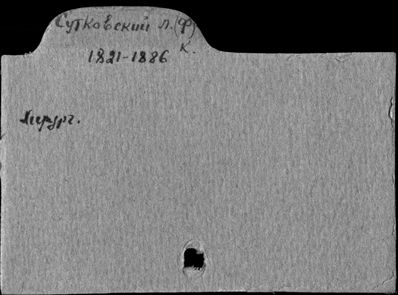 Сутковский Л.(Ф)
К.
1821-1886
Хирург.